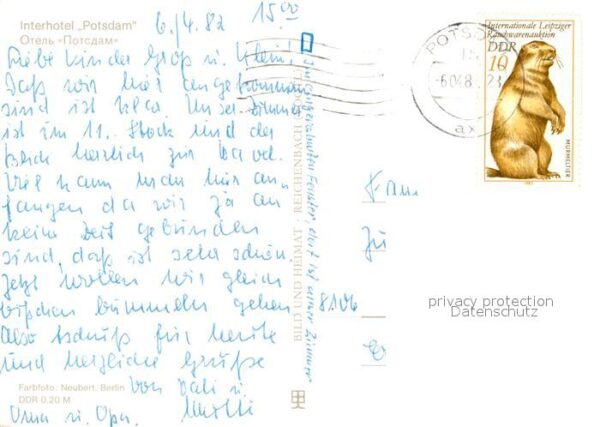 Interhotel „Potsdam"
Отель «Потсдам»
6./4.82 15.00
Liebe Kinder Groß u. Klein!
Daß wir hier angekommen
sind ist klar. Unser Zimmer
ist im 11. Stock und der
Blick herrlich zur Havel.
Viel kann man hier an-
fangen da wir ja an
keine Zeit gebunden
sind, daß ist sehr schön.
Jetzt wollen wir gleich
bißchen bummeln gehen
Also tschüß für heute
und herzliche Grüße
von Vati u. Mutti
Oma u. Opa.
Farbfoto: Neubert, Berlin
DDR 0,20 M
BILD UND HEIMAT · REICHENBACH
Im eingerahmten Fenster dort ist unser Zimmer
Fam.
8106
POTSD
15
-6.04.8 -23
ax
Internationale Leipziger
Rauchwarenauktion
DDR
10
MURMELTIER
1982
privacy protection
Datenschutz